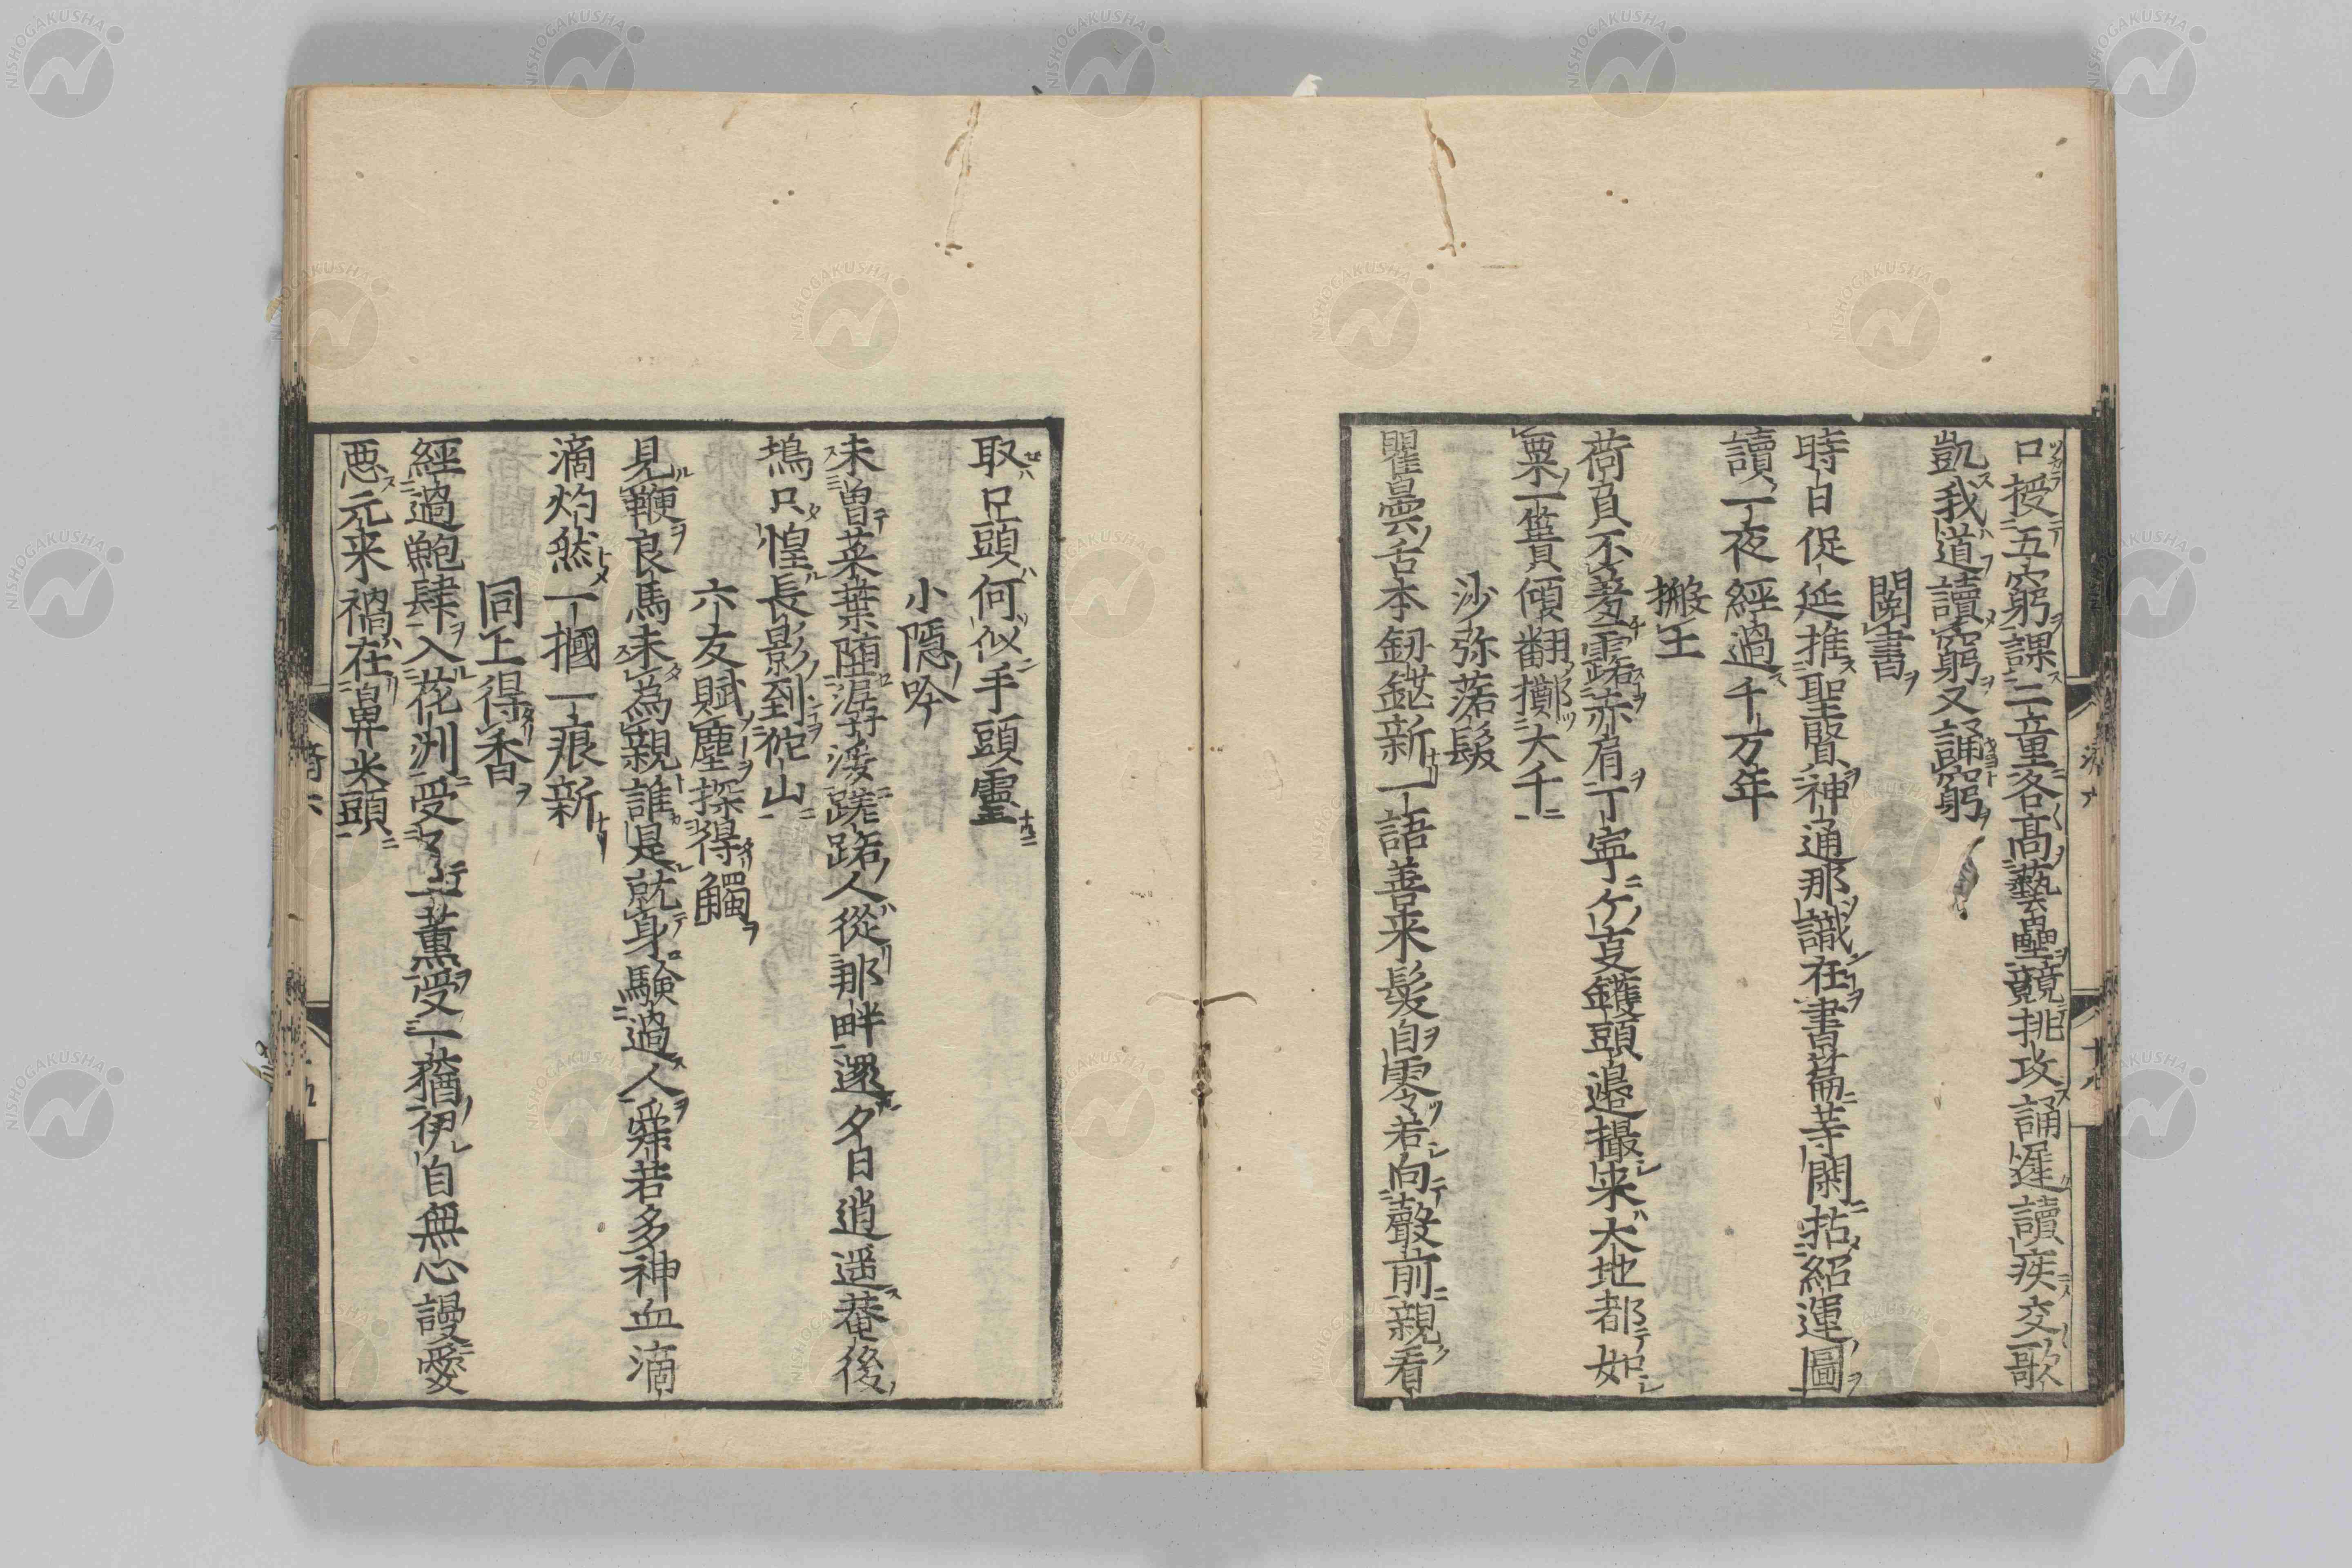 口授五窮課二童各高藝壘競挑攻誦遲讀疾交歌
凱我道讀窮又誦窮
閲書
時日促延推聖賢神通那識在書篇等閑拈紹運圖
讀一夜經過千万年
搬土
荷負不羞露赤肩丁寧ケ支钁頭邉撮来大地都如
粟一簣傾翻擲大千
沙弥落髮
瞿曇舌本釼鋩新一語善来髮自零若向聲前親看
取口頭何似手頭靈
小隱吟
未曽菜葉堕潺湲蹉跎人從那畔還夕日逍遥菴後
塢只惶長影到佗山
六友賦塵探得觸
見鞭良馬未為親誰是就身驗過人舜若多神血滴
滴灼然一摑一痕新
同上得香
經過鮑肆入花洲受了一薫受一蕕伊自無心謾愛
悪元来禍在鼻头頭